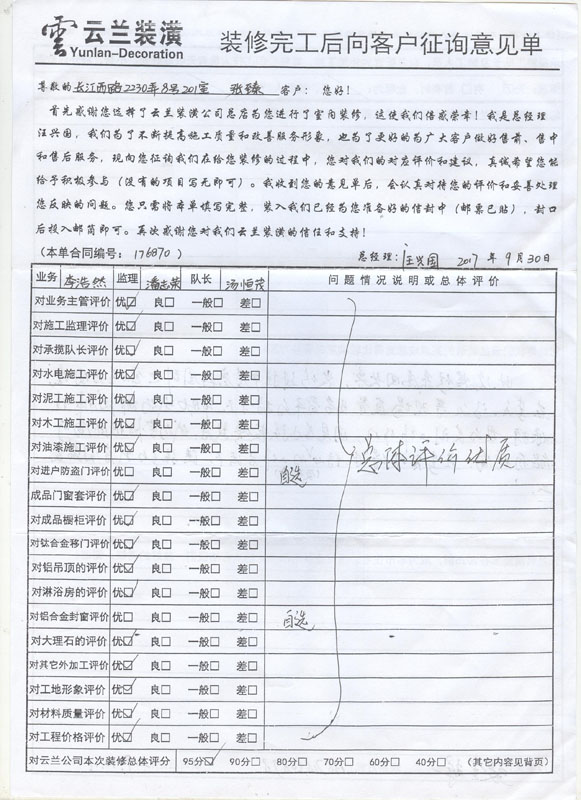 雲 云兰装潢
Yunlan-Decoration
装修完工后向客户征询意见单
尊敬的长江西路2230弄8号201室 张臻 客户：您好！
首先感谢您选择了云兰装潢公司总店为您进行了室内装修，这使我们倍感荣幸！我是总经理
汪兴国，我们为了不断提高施工质量和改善服务形象，也为了更好的为广大客户做好售前、售中
和售后服务，现向您征询我们在给您装修的过程中，您对我们的对应评价和建议，真诚希望您能
给予积极参与（没有的项目写无即可）。我收到您的意见单后，会认真对待您的评价和妥善处理
您反映的问题。您只需将本单填写完整，装入我们已经为您准备好的信封中（邮票已贴），封口
后投入邮筒即可。再次感谢您对我们云兰装潢的信任和支持！
（本单合同编号：176870）
总经理：汪兴国 2017年9月30日
业务 李浩然 监理 潘志荣 队长 汤恒茂 问题情况说明或总体评价
对业务主管评价 优☑ 良□ 一般□ 差□
对施工监理评价 优☑ 良□ 一般□ 差□
对承揽队长评价 优☑ 良□ 一般□ 差□
对水电施工评价 优☑ 良□ 一般□ 差□
对泥工施工评价 优☑ 良□ 一般□ 差□
对木工施工评价 优☑ 良□ 一般□ 差□
对油漆施工评价 优☑ 良□ 一般□ 差□ 总体评价优质
对进户防盗门评价 优□ 良□ 一般□ 差□ 自选
成品门窗套评价 优☑ 良□ 一般□ 差□
对成品橱柜评价 优☑ 良□ 一般□ 差□
对钛合金移门评价 优☑ 良□ 一般□ 差□
对铝吊顶的评价 优☑ 良□ 一般□ 差□
对淋浴房的评价 优☑ 良□ 一般□ 差□
对铝合金封窗评价 优□ 良□ 一般□ 差□ 自选
对大理石的评价 优☑ 良□ 一般□ 差□
对其它外加工评价 优☑ 良□ 一般□ 差□
对工地形象评价 优☑ 良□ 一般□ 差□
对材料质量评价 优☑ 良□ 一般□ 差□
对工程价格评价 优☑ 良□ 一般□ 差□
对云兰公司本次装修总体评分 95分☑ 90分□ 80分□ 70分□ 60分□ 40分□ （其它内容见背页）